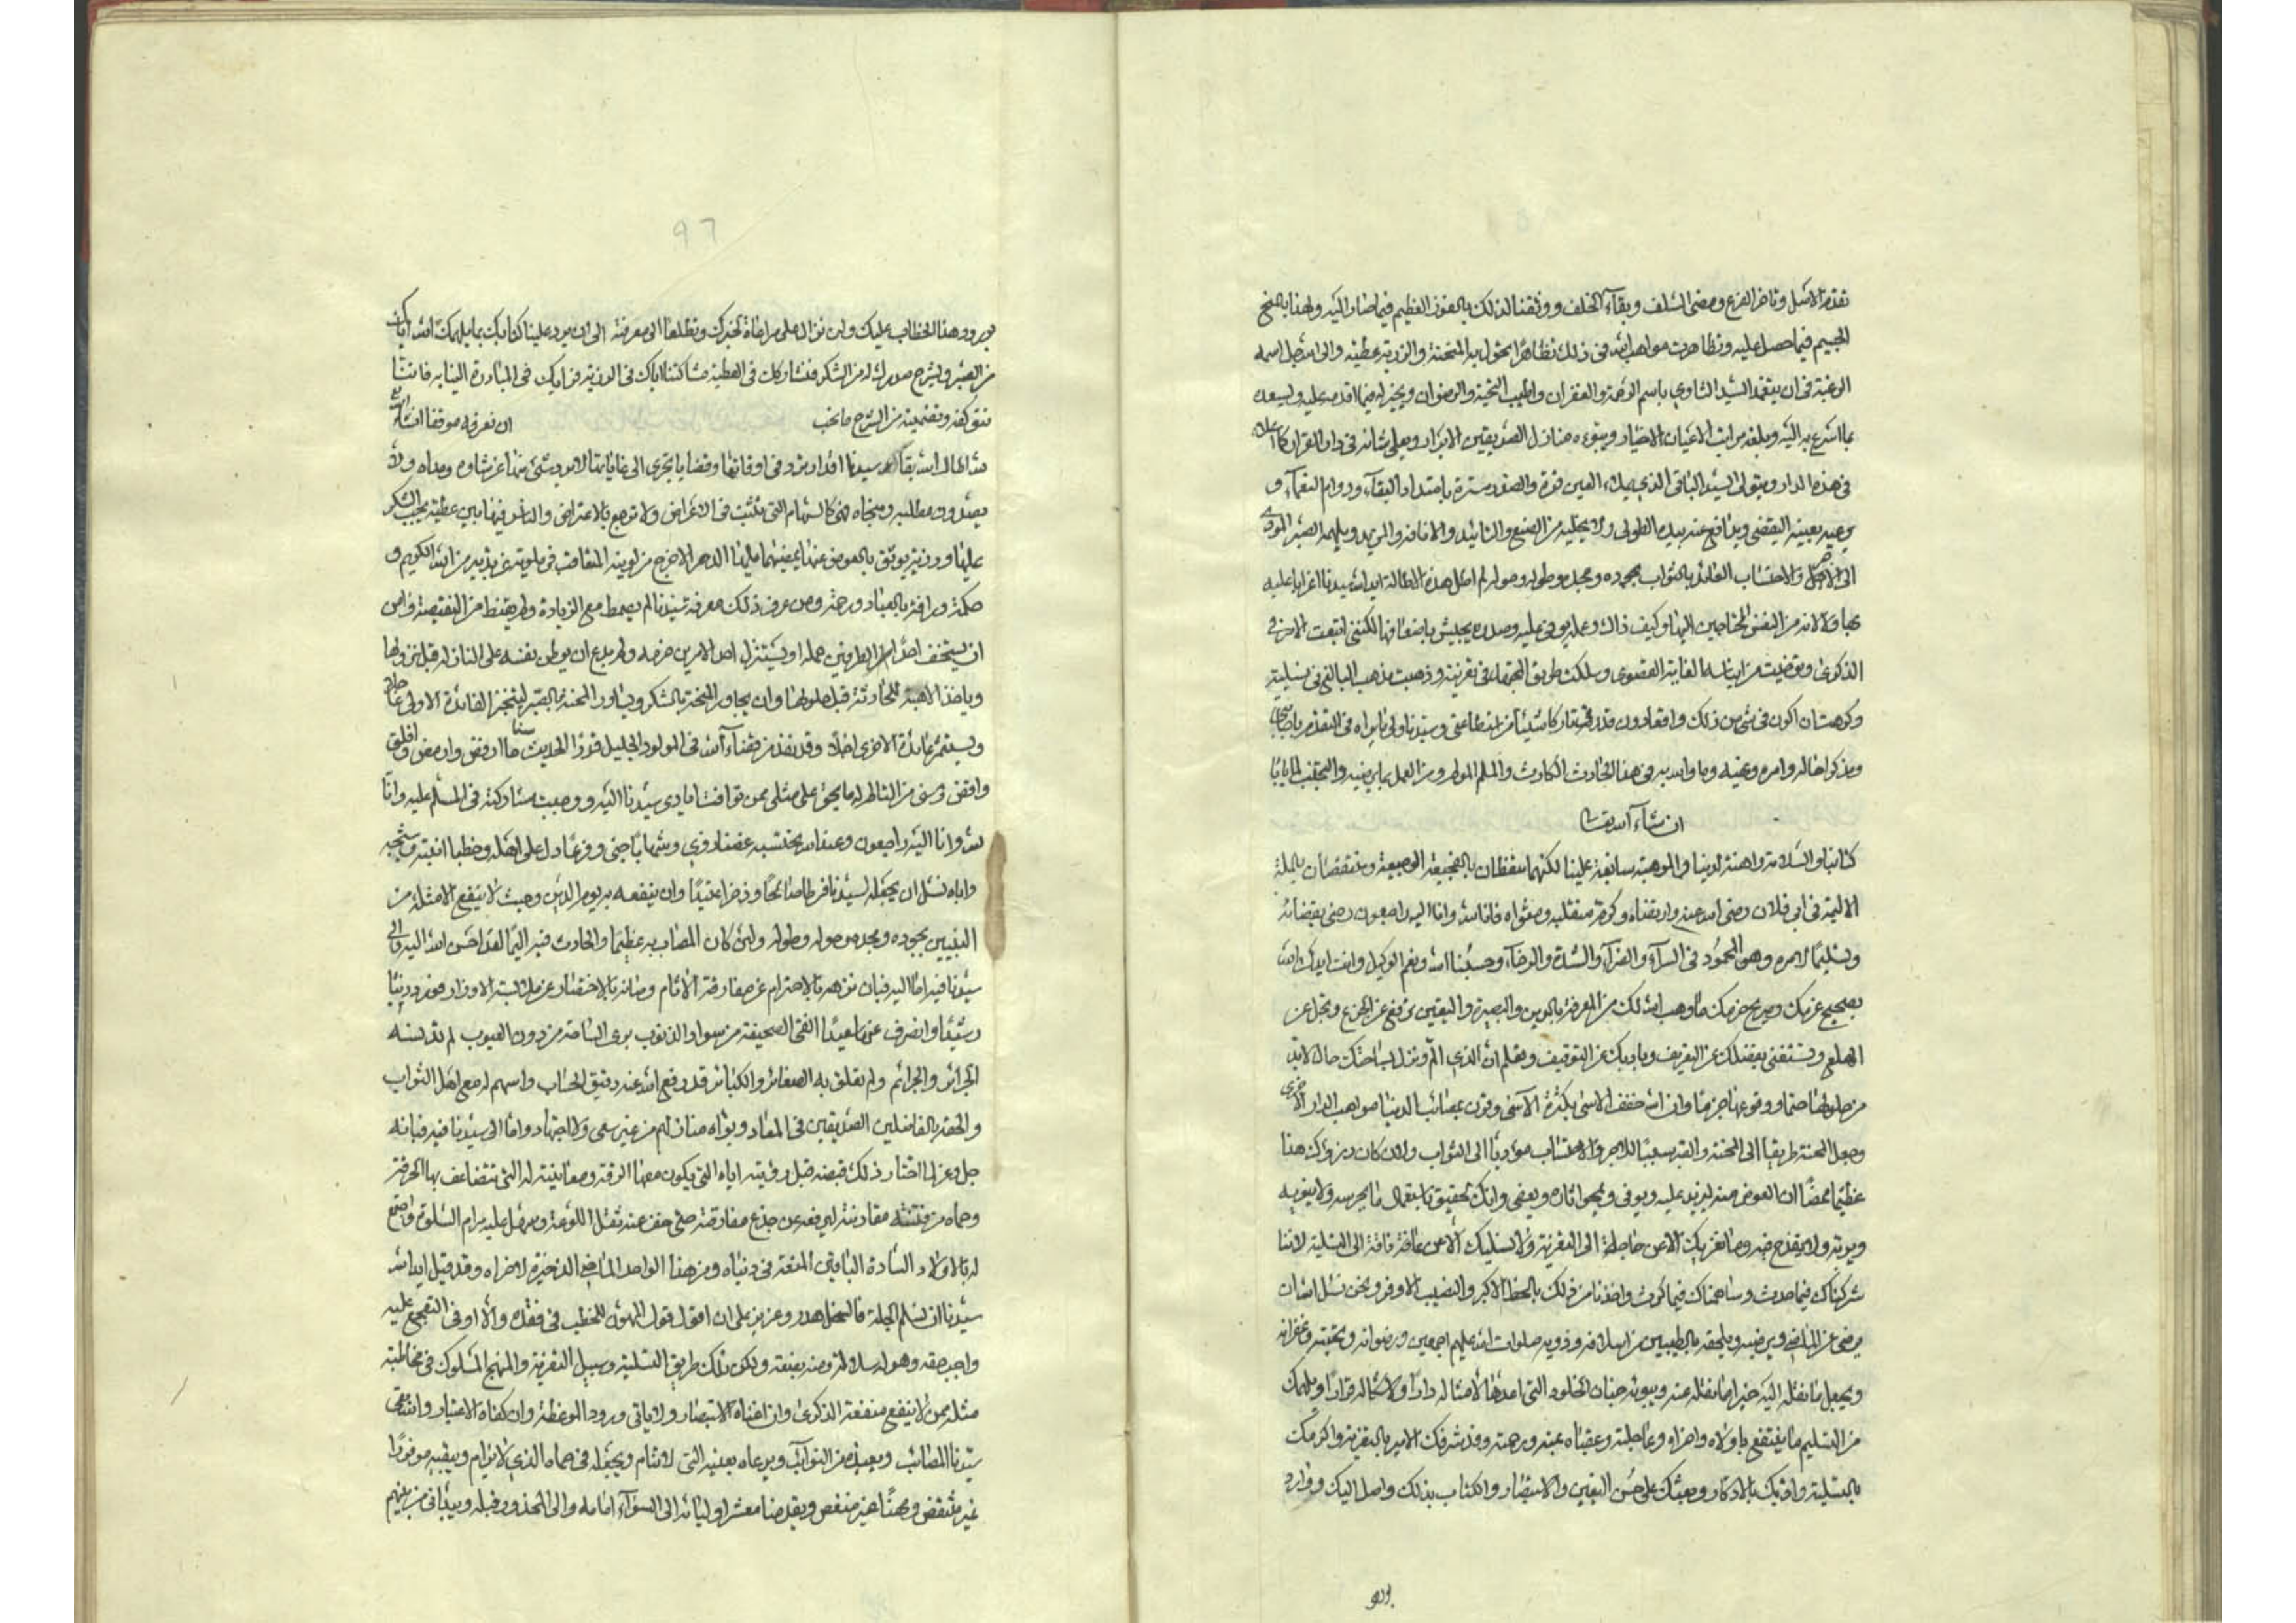 تقدم الاصل وتاخر الفرع ومضى السلف وبقاء الخلف ووثقنا لذلك بالفوز العظيم فيما صار اليه ولهذا بالمنح
الجسيم فيما حصل عليه وتظاهرت مواهب الله في ذلك تظاهرا يحول به المحنة والرزية عطية والى الله جل اسمه
الرغبة في ان يتغمد السيد الثاوي باسم الرحمة والغفران واطيب التحية والرضوان ويجيز له فيما اقدمه عليه ويسعده
بما اسرع به اليه ويبلغه مراتب الاعيان الاخيار ويبوءه منازل الصديقين الابرار ويعلي شانه في دار القرار كما اعلاه
في هذه الدار ويتولى السيد الباقي الذي يملاء العين قرة والصدر مسرة بامتداد البقاء ودوام النعماء و
يرعيه بعينه اليقضى ويدافع عنه بيده الطولى ولا يخليه من الصنع والتائيد والانافة والمزيد ويلهمه الصبر المودى
الى الاجر والاحتساب العائد بالثواب بجوده ومجده وطوله وحوله لم اطل هذه الاطالة ايد الله سيدنا اغرابا عليه
بها ولا لانه من النفس المحتاجين اليها وكيف ذاك وعمله يوفى عليه وصدره يجيش باضعافها لكنني اتبعت الامر في
الذكرى وتوخيت من ايناسه الغاية القصوى وسلكت طريق المجتهد في تعزيته وذهبت مذهب البالغ في تسليته
وكرهت ان اكون في شي من ذلك واقعا دون قدر وتاركا شيئا من استطاعتي وسيدنا ولي ما يراه في التقدم باجابتي
وبذكر احواله وامره ونهيه وما واسيه في هذا الحادث الكارث والملم المولم ومن العمل بما يرضيه والتجنب لما ياباه
ان شاء الله تعالى
كتابنا والسلامة راهنة لدينا والموهبة سابغة علينا لكنهما منغصتان بالفجيعة الوجيعة ومنقصتان بالملمة
الاليمة في ابي فلان رضي الله عنه وارضاه وكرم منقلبه ومثواه فانا لله وانا اليه راجعون رضى بقضائه
وتسليما لامره وهو المحمود في السراء والضراء والشدة والرخاء وحسبنا الله ونعم الوكيل وانت ايدك الله
بصحيح عزمك وصريح حزمك وما وهب الله لك من المعرفة بالدين والبصيرة واليقين ترفع عن الجزع وتجل عن
الهلع وتستغني بفضلك عن التعريف وبادبك عن التوقيف وتعلم ان الذي الم ونزل بساحتك حال لابد
من حلولها حتما ووقوعها جزما وان الله خفف الاسى بكثرة الاسى وقرن بمصائب الدنيا مواهب الدار الاخرى
وجعل المحنة طريقا الى المنحة والصبر سببا للاجر والاحتساب موديا الى الثواب ولان كان درزؤك هذا
عظيما ممضا ان العوض منه ليزيد عليه ويوفى ويمحو اثاره ويعفى وانك لحقيق باستعمال ما يحرسه ولا ينوبه
ويوته ولا يقدح فيه وما نعزيك الا عن حاجة الى التعزية ولا نسليك الا عن فاقة الى التسلية لاننا
شركناك فيما حدث وساهمناك فيما كرث واخذنا من ذلك بالحظ الاكبر والنصيب الاوفر ونحن نسئل الله ان
يرضى عن الماضي ويرضيه ويلحقه بالطيبين من اسلافه وذويه صلوات الله عليهم اجمعين ورضوانه وتحيته وغفرانه
ويجعل ما نقله اليه خيرا مما نقله عنه ويبوئه جنات الخلود التي اعدها لامثاله دارا ولاشكاله قرارا ويلهمك
من التسليم ما ينتفع باولاه واخراه وعاجلته وعقباه بمنه ورحمته وقد شرفك الامير بالتعزية واكرمك
بالتسلية وافردك بالاذكار وبعثك على حسن اليقين والاستبصار والكتاب بذلك واصل اليك ووارد
بورو
96
بورود هذا الخطاب عليك ولن نزال على مراعاة لخبرك وتطلعا الى معرفته الى ان يرد علينا كتابك بما يلهمك الله اياك
من الصبر ويشرح صدرك له من الشكر فنشاركك في العطية مشاركتنا اياك في الرزية فرايك في المبادرة الينا به فاننا
نتوكفه وتضمينه من الشرح ما نحب ان نعرفه موفقا ان شاء الله تع
لله اطال الله بقاء سيدنا اقدار ترد في اوقاتها وقضايا تجري الى غاياتها لا يرد شئ منها عن شاوه ومداه ولا
يصد دون مطلبه ومنجاه فهي كالسهام التي تثبت في الاغراض ولا ترجع بالاعتراض والناس فيها بين عطية يجب الشكر
عليها ورزية يوثق بالعوض عنها
حكمة ورافة بالعباد ورحمة ومن عرف ذلك معرفة سيدنا لم يغمط مع الزيادة ولم يقنط من النقيصة وامن
ان يستخف احد الطرفين حمله او يستنزل احد الامرين حزمه ولم يدع ان يوطن نفسه على النازلة قبل نزولها
وياخذ الاهبة للحادثة قبل حلولها وان يجاور المنحة بالشكر ويساور المحنة بالصبر ليتنجز الفائدة الاولى عاجلا
ويستمر عائدة الاخرى اجلا وقد نفذ من قضاء الله في المولود الجليل قدرا الحديث سنا ما ارمض واومض واقلق
واقض ومس من التالم له ما يحق على مثلي ممن توافت ايادي سيدنا اليه ووجبت مشاركته في الملم عليه وانا
لله وانا اليه راجعون وعند الله يحتسبه غصنا ذوي وشهابا خبى وفرعا دل على اصله وخطيا انبته وشيجه
واياه نسئل ان يجعله لسيدنا فرطا صالحا وذخرا عتيدا وان ينفعه به يوم الدين وحيث لا ينفع الا مثله من
البنين بجوده ومجده وحوله وطوله ولئن كان المصاب به عظيما والحادث فيه اليما لقد احسن الله اليه والى
سيدنا فيه اما اليه فبان نزهه بالاحترام عن مقارفة الاثام وصانه بالاختصار عن ملابسة الاوزار فورد دنياه
رشيدا وانصرف عنها سعيدا نقي الصحيفة من سواد الذنوب بري الساحة من درن العيوب لم تدنسه
الجرائر والجرائم ولم يعلق به الصغائر والكبائر قد رفع الله عنه دقيق الحساب واسهم له مع اهل الثواب
والحقه بالفاضلين الصديقين في المعاد وبواه منازلهم من غير سعى ولا اجتهاد واما الى سيدنا فيه فبانه
جل وعز لما اختار ذلك قبضه قبل رؤيته اياه التي يكون معها الرقة ومعاينته له التي تتضاعف بها الحرقة
وحماه من فتنته مقارنته ليرفعه عن جزع مفارقته حتى خف عنه ثقل اللوعة وسهل عليه مرام السلوة وامتع
له بالاولاد السادة الباقين المتعة في دنياه ومن هذا الواحد الماضي الذخيرة لاخراه وقد قيل ايد الله
سيدنا ان تسلم الجلة فالسخل هدر وعزيز على ان اقول قول المهون للخطب في فقده والا اوفى التفجع عليه
واجب حقه وهو له سلالة ومنه بضعة ولكن ذلك طريق التسلية وسبيل التعزية والمنهج المسلوك في مخاطبة
مثله ممن لا ينفع منفعة الذكرى وان اغناه الاستبصار ولا يابى ورود الموعظة وان كفاه الاعتبار والله يقي
سيدنا المصائب ويعيذه من النوائب ويرعاه بعينه التي لا تنام ويجعله في حماه الذي لا يرام ويبقيه موفورا
غير منتقض ومهنا غير منغص ويقدمنا معشر اوليائه الى السواء امامه والى المحذور قبله ويبدا بي من بينهم